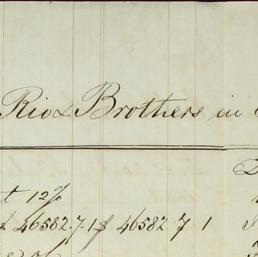 Rio & Brothers in
t 12%
46582.7.1 $ 46582 7 1